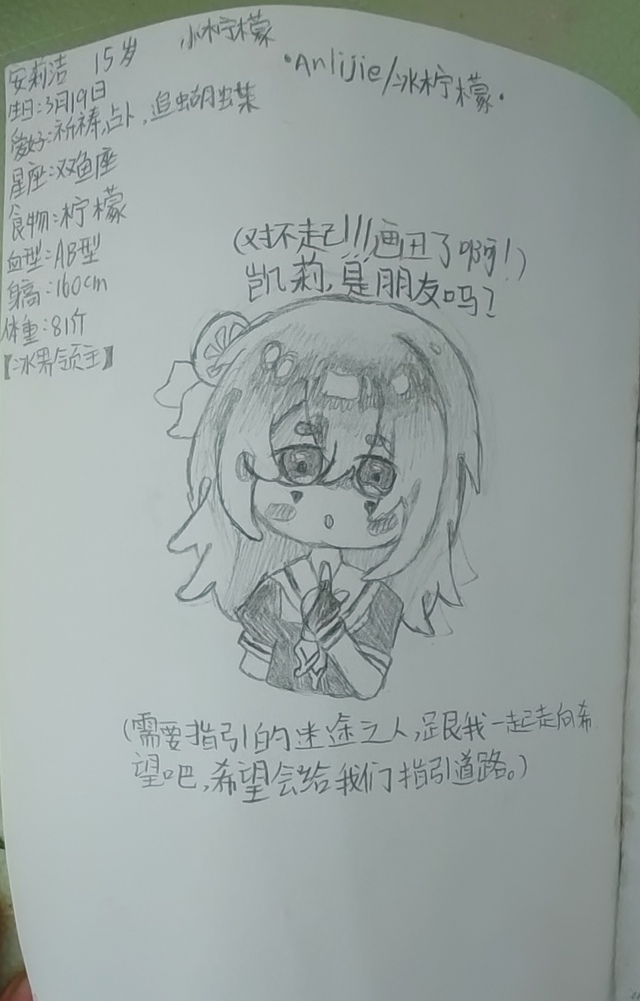 安莉洁 15岁 小柠檬
·Anlijie/冰柠檬·
生日:3月19日
爱好:祈祷,占卜,追蝴蝶
星座:双鱼座
食物:柠檬
血型:AB型
身高:160cm
体重:81斤
【冰界领主】
(对不起!!!画丑了啊!)
凯莉,是朋友吗?
(需要指引的迷途之人,跟我一起走向希
望吧,希望会给我们指引道路。)